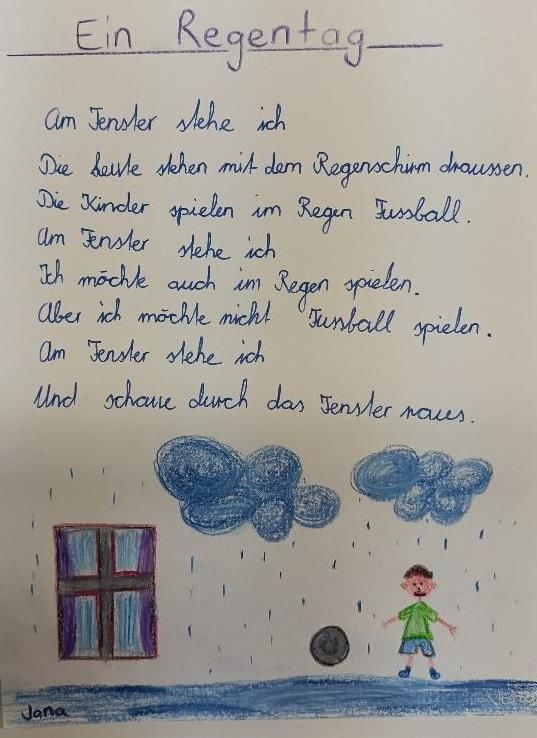 Ein Regentag
Am Fenster stehe ich
Die Leute stehen mit dem Regenschirm draussen.
Die Kinder spielen im Regen Fussball.
Am Fenster stehe ich
Ich möchte auch im Regen spielen.
Aber ich möchte nicht Fussball spielen.
Am Fenster stehe ich
Und schaue durch das Fenster raus.
Jana